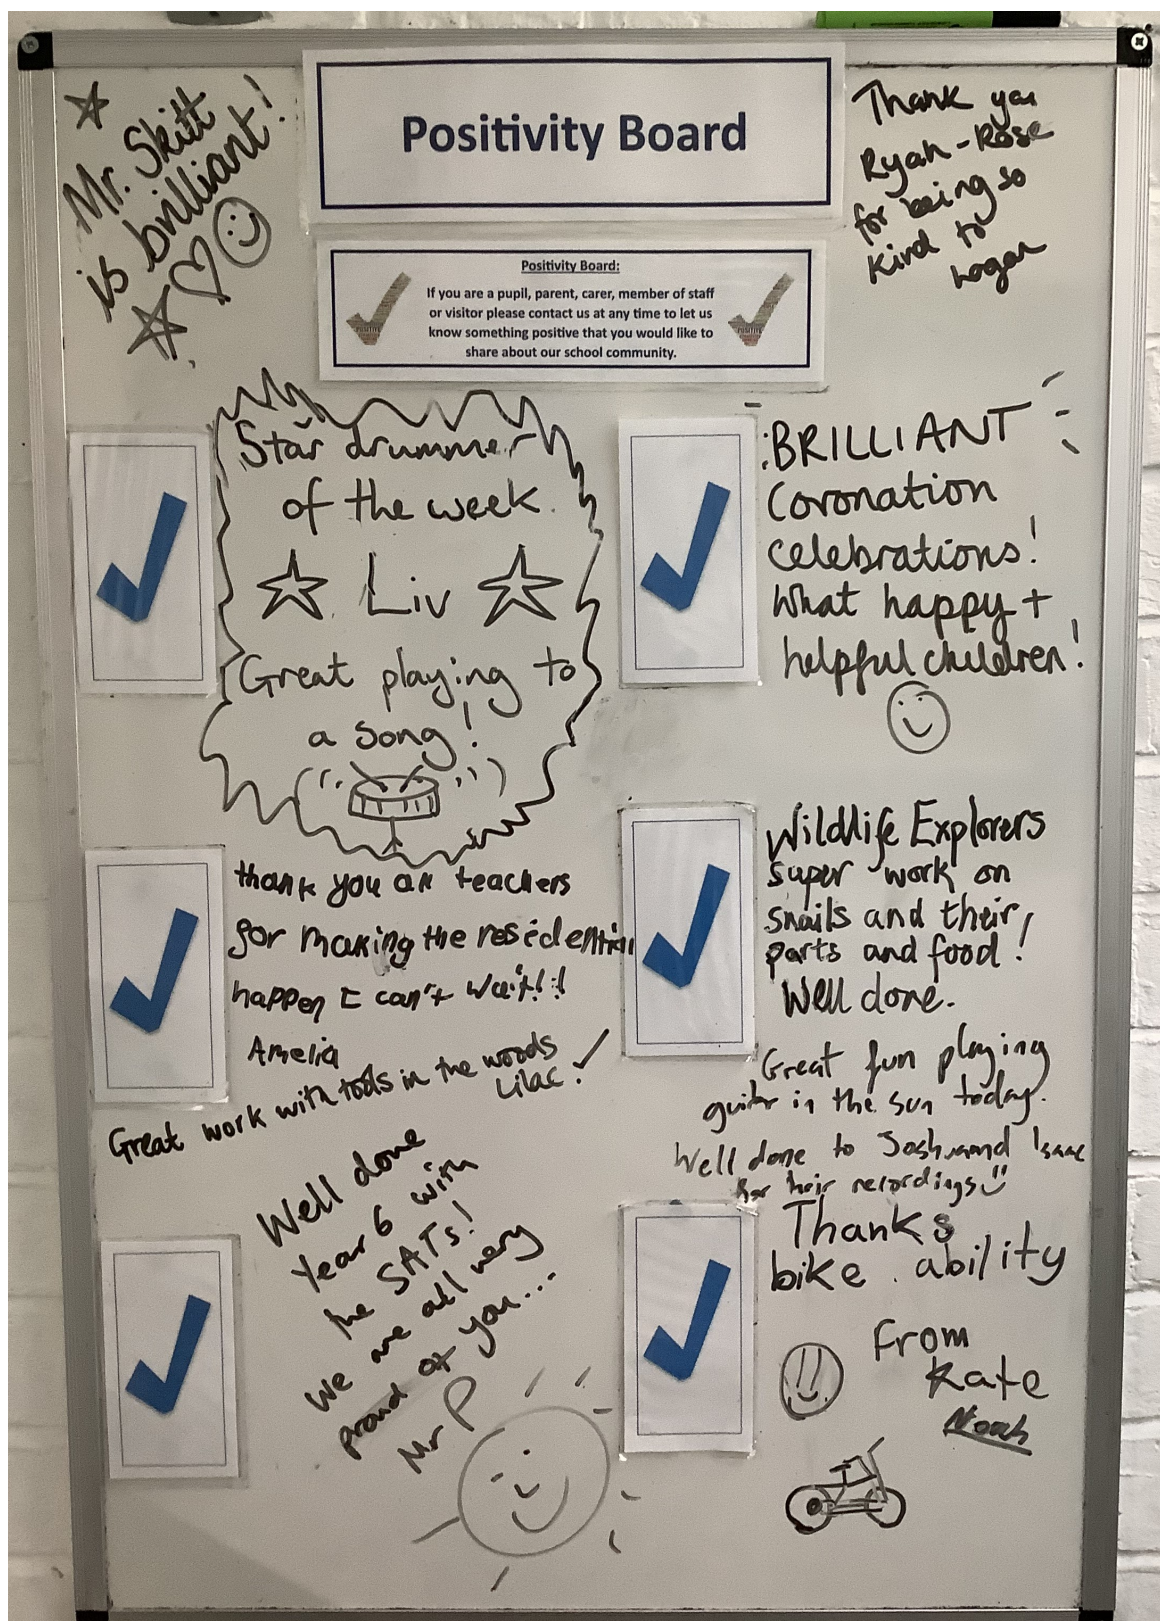 Positivity Board
Mr. Skitt
is brilliant!
Thank you
Ryah-Rose
for being so
kind to
Logan
Positivity Board:
If you are a pupil, parent, carer, member of staff
or visitor please contact us at any time to let us
know something positive that you would like to
share about our school community.
Star drummer
of the week
Liv
Great playing to
a song!
BRILLIANT
Coronation
celebrations!
What happy +
helpful children!
thank you all teachers
for making the residential
happen I can't wait!!
Amelia
Great work with tools in the woods
Lilac!
Wildlife Explorers
super work on
snails and their
parts and food!
Well done.
Great fun playing
guitar in the sun today.
Well done to Josh and Isaac
for their recordings
Well done
Year 6 with
the SATs!
We are all very
proud of you...
Mr P
Thanks
bike ability
From
Kate
Noah